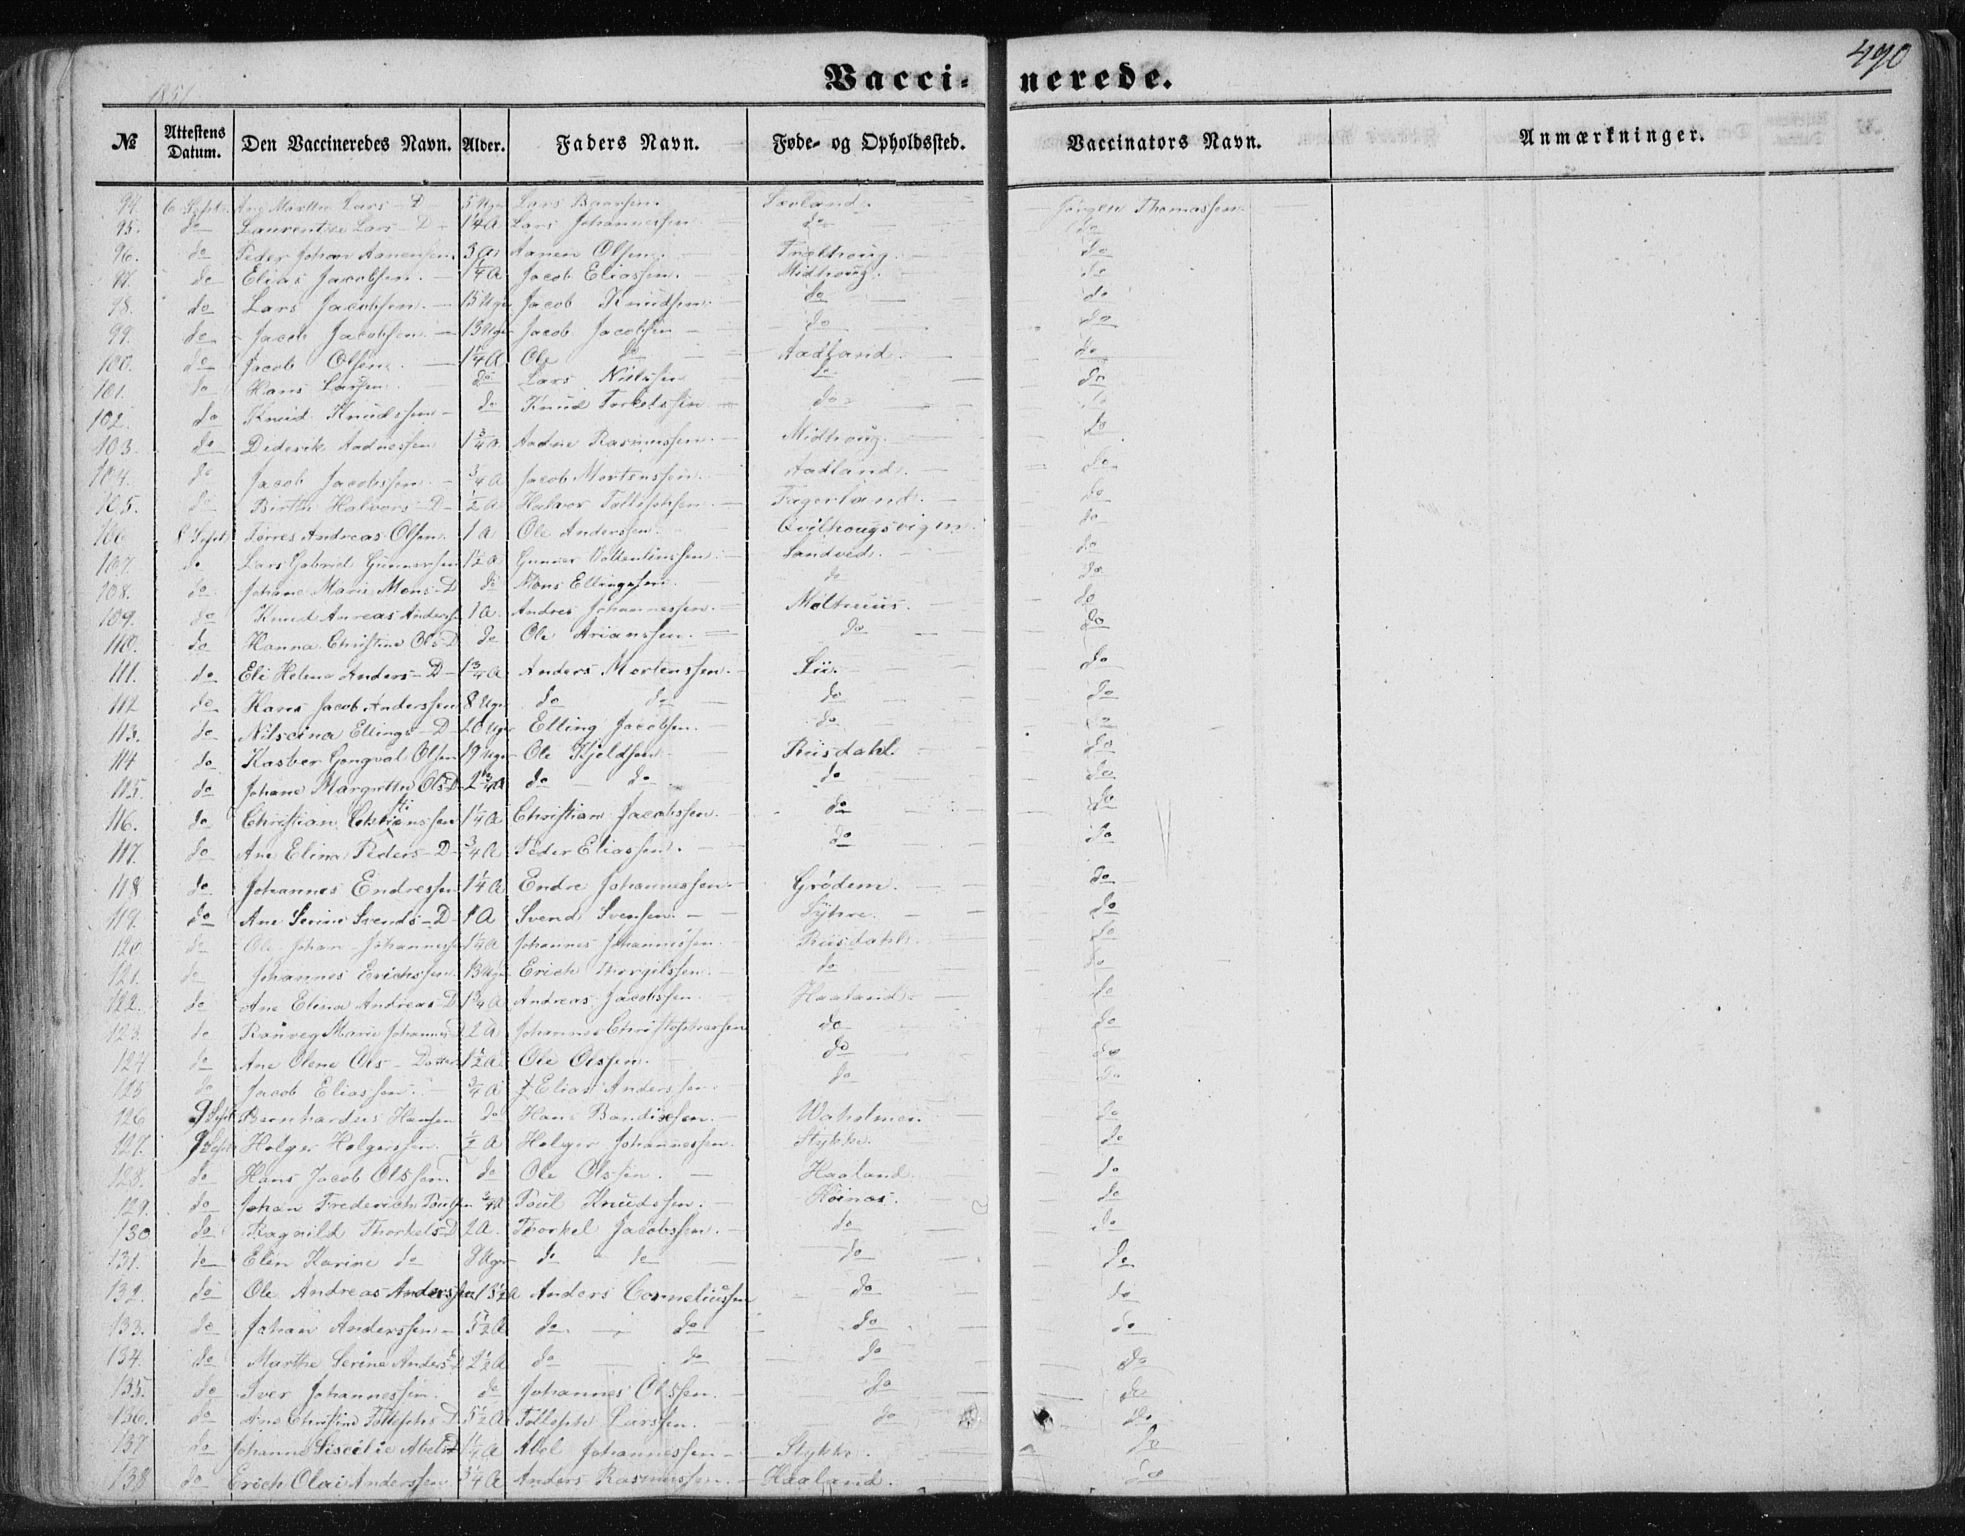 490
Vaccinerede.
1851
№ Attestens Datum. Den Vaccineredes Navn. Alder. Faders Navn. Føde- og Opholdssted. Vaccinators Navn. Anmærkninger.
94. 6 Sept. Ane Marthe Lars-D 5 Uger Lars Jørgen Thomassen
95. do Laurentze Lars-D 1/4 A Lars Johannessen do do
96. do Peder Johan Aanensen 3 A Aanen Olsen do
97. do Elias Jacobsen 1/4 A Jacob Eliassen. Midhoug. do
98. do Lars Jacobsen 15 Uger Jacob Knudsen do do
99. do Jacob Jacobsen 13 Uger Jacob Jacobsen do do
100. do Jacob Olsen 1 1/4 A Ole do Aadland do
101. do Hans Larsen do Lars Nielssen do do
102. do Knud Knudssen do Knud Torkelssen do do
103. do Diderik Aadnessen 1 3/4 A Aadne Rasmussen Midhoug. do
104. do Jacob Jacobssen 3/4 A Jacob Mortenssen Aadland. do
105. do Birthe Halvors-D 1/2 A Halvor Tollefsen Fagerland. do
106 8 Sept. Torres Andreas Olsen 1 A Ole Anderssen do
107. do Lars Gabriel Gunnersen 1 1/2 A Gunner Vallentinssen Sandved. do
108. do Johane Marie Mons-D do Mons Ellingssen do do
109. do Knud Anreas Anderss 1 A Andres Johannessen. do
110. do Hanna Christine Ols-D do Ole Arianssen. do do
111. do Eli Helene Anders-D 1 3/4 A Anders Mortenssen. Lii. do
112 do Hans Jacob Anderssen 8 Uger do do do do
113. do Nilseina Ellings-D 20 Uger Elling Jacobsen. do do
114 do Kasber Gongval Olsen 19 Uger Ole Kjeldsen Riisdahl. do
115. do Johane Margrethe Ols-D do do do do
116. do Christian Christianssen 1 1/4 A Christian Jacobssen. do do
117. do Ane Elina Peders-D 3/4 A Peder Eliassen. do do
118 do Johannes Endressen 1 1/4 A Endre Johannessen Grødem. do
119. do Ane Serine Svends-D 1 A Svend Svensen. do
120 do Ole Johan Johannessen 1 1/4 A Johannes Johannessen. Riisdahl. do
121. do Johannes Erichssen. 13 Uger Erich Thorgilssen. do do
122. do Ane Elina Andreas-D 1 3/4 A Andreas Jacobssen. Haaland. do
123. do Ranveg Marie Johannes-D 2 A Johannes Christophersen do do
124 do Ane Olene Ols-Datter 1 1/2 A Ole Olssen. do do
125 do Jacob Eliassen. 3/4 A Elias Anderssen. do do
126 9 Sept. Bernhardus Hansen do Hans Bendixsen. Waholmen do
127. 9 Sept. Holger Holgerssen. 1/2 A Holger Johannessen. Stykke. do
128. do Hans Jacob Olssen. do Ole Olssen. Haaland do
129. do Johan Frederich Poulsen 3/4 A Poul Knudssen. do
130 do Ragnild Thorkels-D 2 A. Thorkel Jacobssen. do do
131. do Elen Karine do 9 Uger do do do do
132. do Ole Andreas Anderssen Anders Corneliussen do do
133. do Johan Anderssen 5 1/2 A do do do do
134. do Marthe Serine Anders-D 2 1/2 A do do do do
135. do Iver Johannessen. do Johannes Olssen. do do
136. do Ane Christine Tollephs D 5 1/2 A Tolleph Larssen. do do
137. do Johanne Siscilie Abels-D 1 1/4 A Abel Johannessen Stykke. do
138. do Erich Olai Anderssen 3 1/4 A Anders Rasmussen. Haaland. do